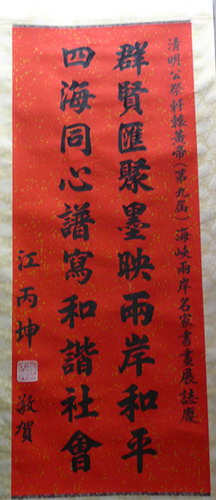 清明公祭軒轅黃帝(第九屆)海峽兩岸名家書畫展誌慶
群賢匯聚墨映兩岸和平
四海同心譜寫和諧社會
江丙坤
敬賀